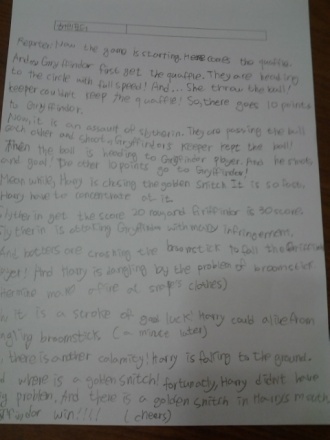 Reporter: Now the game is starting. Here comes the quaffle.
And Gryffindor first get the quaffle. They are heading
to the circle with full speed! And... She throw the ball!
keeper couldn't keep the quaffle! So, there goes 10 points
to Gryffindor.
Now, it is an account of slytherin. They are passing the ball
each other and shoot! Gryffindor's keeper kept the ball!
Then the ball is heading to Gryffindor player. And he shoots,
and goal! The other 10 points go to Gryffindor!
Mean while, Harry is chasing the golden snitch. It is so fast.
Harry have to concentrate of it.
slytherin get the score 20 and 30 score.
Slytherin is attacking Gryffindor with many infringement.
And are the broomstick to fall the
player! And Harry is dangling by the problem of broomstick!
make a fire at snape's clothes)
it is a stroke of good luck! Harry could alive from
broomstick. (a minute later)
there is another calamity! Harry is falling to the ground.
where is a golden snitch! fortunatly, Harry didn't have
problem. And there is a golden snitch in Harry's mouth.
win!!!! (cheers)